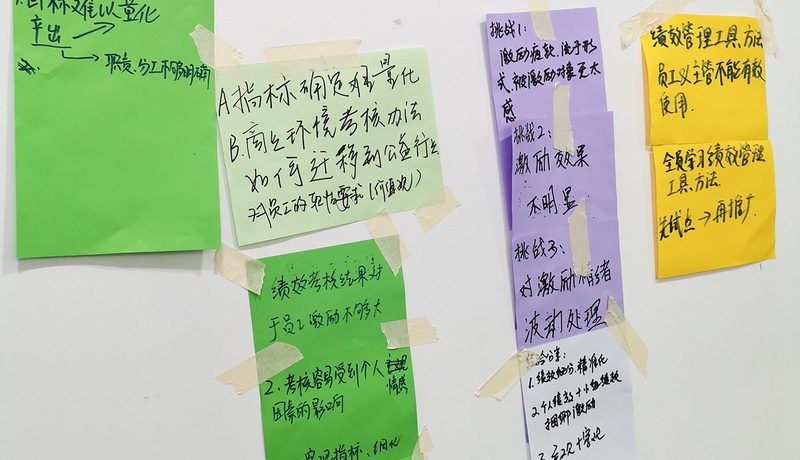 1.目标难以量化
产出
职责、分工不够明确
A 指标确定难量化
B.商业环境考核办法
如何迁移到公益行业
对员工的软性要求(价值观)
绩效考核结果对
于员工激励不够大
2.考核容易受到个人主观
情感
因素的影响
客观指标、细化
挑战1:
激励疲软,流于形
式,被激励对象无太
感
挑战2:
激励效果
不明显
挑战3:
对激励不足者
波动处理!
经验分享:
1.绩效积分、精准化
2.个人绩效+小组绩效
捆绑激励
绩效管理工具、方法
员工以主管不能有效
使用.
全员学习绩效管理
工具、方法.
先试点→再推广